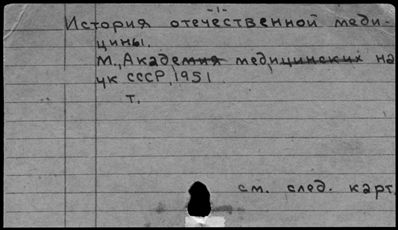 -1-
История отечественной меди-
цины.
М., Академия медицинских на
ук СССР, 1951.
т.
см. след. карт.